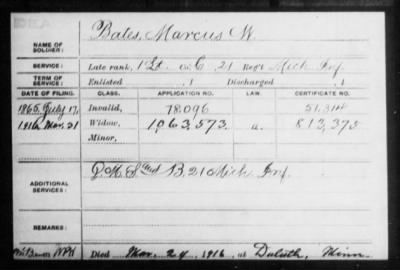 NAME OF SOLDIER: Bates, Marcus W.
SERVICE: Late rank, 1 Lt. Co. C, 21 Reg't Mich Inf.
TERM OF SERVICE: Enlisted , 1 Discharged , 1
DATE OF FILING. CLASS. APPLICATION NO. LAW. CERTIFICATE NO.
1865, July 17, Invalid, 78.096
1916, Mar. 31 Widow, 1,063,573. a. 813,372
Minor,
ADDITIONAL SERVICES: Q.M. B. 21 Mich Inf.
REMARKS:
Died Mar. 24, 1916, at Duluth, Minn.